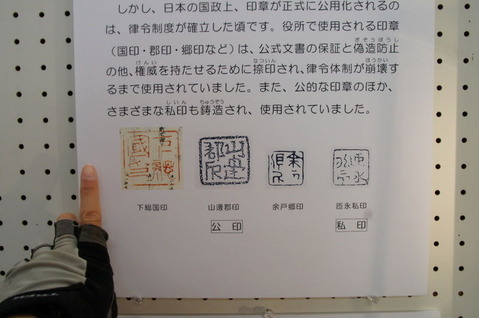 しかし、日本の国政上、印章が正式に公用化されるの
は、律令制度が確立した頃です。役所で使用される印章
（国印・郡印・郷印など）は、公式文書の保証と偽造防止
の他、権威を持たせるために捺印され、律令体制が崩壊す
るまで使用されていました。また、公的な印章のほか、
さまざまな私印も鋳造され、使用されていました。
下総国印 山邊郡印 余戸郷印 匝永私印
公印 私印